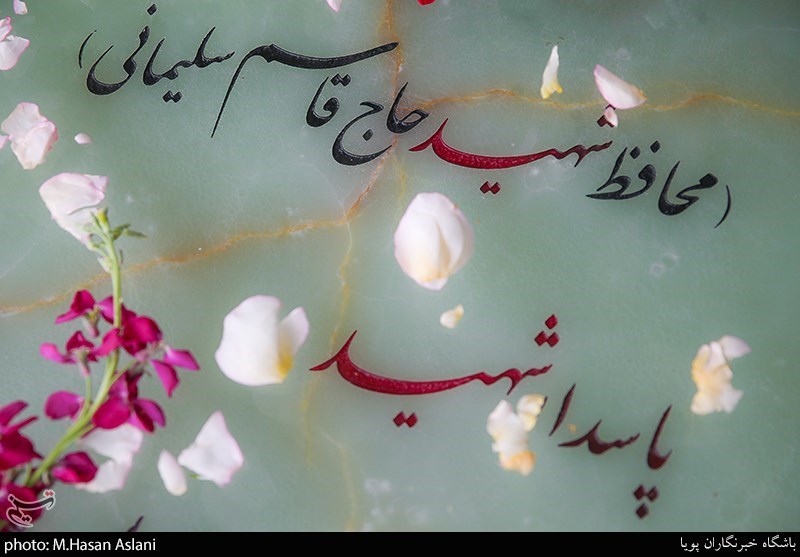 (محافظ شهید حاج قاسم سلیمانی)
پاسدار شهید
تسنیم
photo: M.Hasan Aslani
باشگاه خبرنگاران پویا